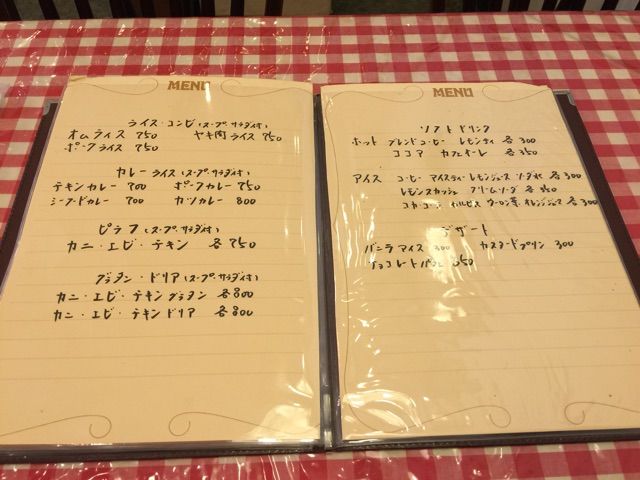 MENU
ライス・コンビ(スープ、サラダ付)
オムライス 750 ヤキ肉ライス 750
ポークライス 750
カレーライス(スープ、サラダ付)
チキンカレー 700 ポークカレー 750
シーフードカレー 700 カツカレー 800
ピラフ(スープ、サラダ付)
カニ・エビ・チキン 各750
グラタン・ドリア(スープ、サラダ付)
カニ・エビ・チキングラタン 各800
カニ・エビ・チキンドリア 各800
MENU
ソフトドリンク
ホット ブレンドコーヒー レモンティ 各300
ココア カフェオーレ 各350
アイス コーヒー アイスティー レモンジュース ソーダ水 各300
レモンスカッシュ クリームソーダ 各350
コカ・コーラ カルピス ウーロン茶 オレンジジュース 各300
デザート
バニラアイス 300 カスタードプリン 300
チョコレートパフェ 350